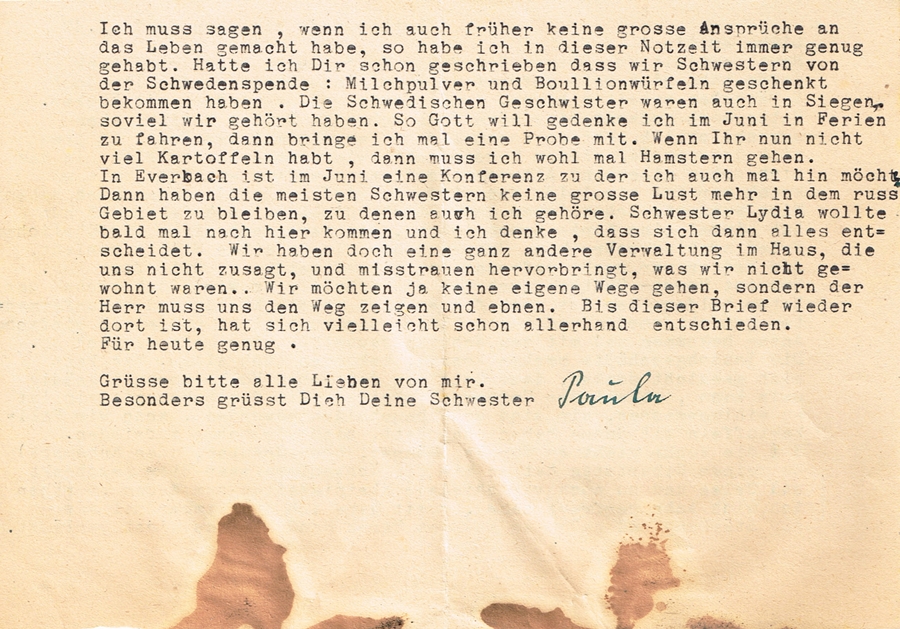 Ich muss sagen , wenn ich auch früher keine grosse Ansprüche an
das Leben gemacht habe, so habe ich in dieser Notzeit immer genug
gehabt. Hatte ich Dir schon geschrieben dass wir Schwestern von
der Schwedenspende : Milchpulver und Boullionwürfeln geschenkt
bekommen haben . Die Schwedischen Geschwister waren auch in Siegen,
soviel wir gehört haben. So Gott will gedenke ich im Juni in Ferien
zu fahren, dann bringe ich mal eine Probe mit. Wenn Ihr nun nicht
viel Kartoffeln habt , dann muss ich wohl mal Hamstern gehen.
In Everbach ist im Juni eine Konferenz zu der ich auch mal hin möcht
Dann haben die meisten Schwestern keine grosse Lust mehr in dem russ
Gebiet zu bleiben, zu denen auch ich gehöre. Schwester Lydia wollte
bald mal nach hier kommen und ich denke , dass sich dann alles ent=
scheidet. Wir haben doch eine ganz andere Verwaltung im Haus, die
uns nicht zusagt, und misstrauen hervorbringt, was wir nicht ge=
wohnt waren.. Wir möchten ja keine eigene Wege gehen, sondern der
Herr muss uns den Weg zeigen und ebnen. Bis dieser Brief wieder
dort ist, hat sich vielleicht schon allerhand entschieden.
Für heute genug .
Grüsse bitte alle Lieben von mir.
Besonders grüsst Dich Deine Schwester Paula